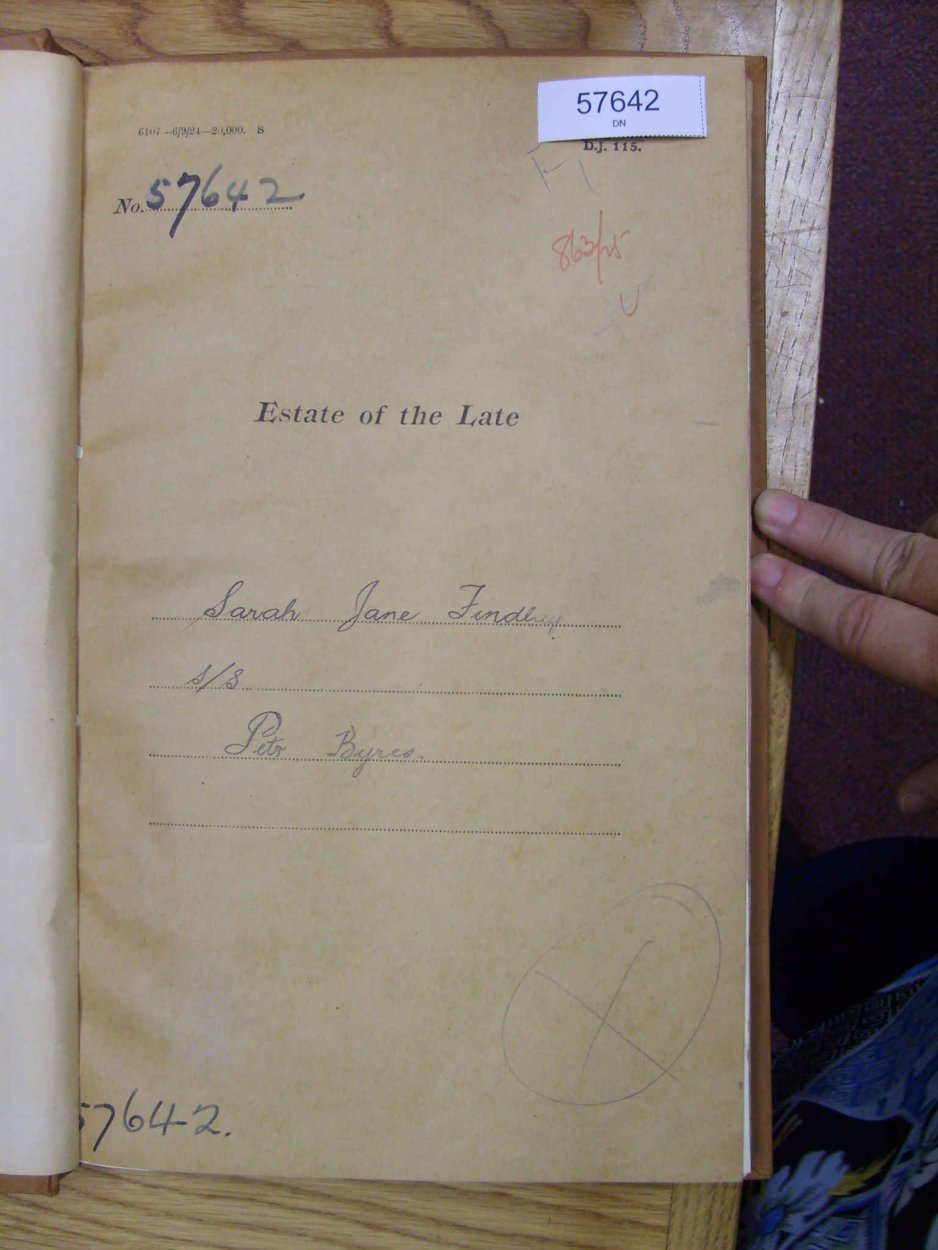 57642
DN
6107 —6/9/24—20,000. S
D.J. 115.
No. 57642
863/25
Estate of the Late
Sarah Jane Findlay
s/s
Petr Byres.
57642.